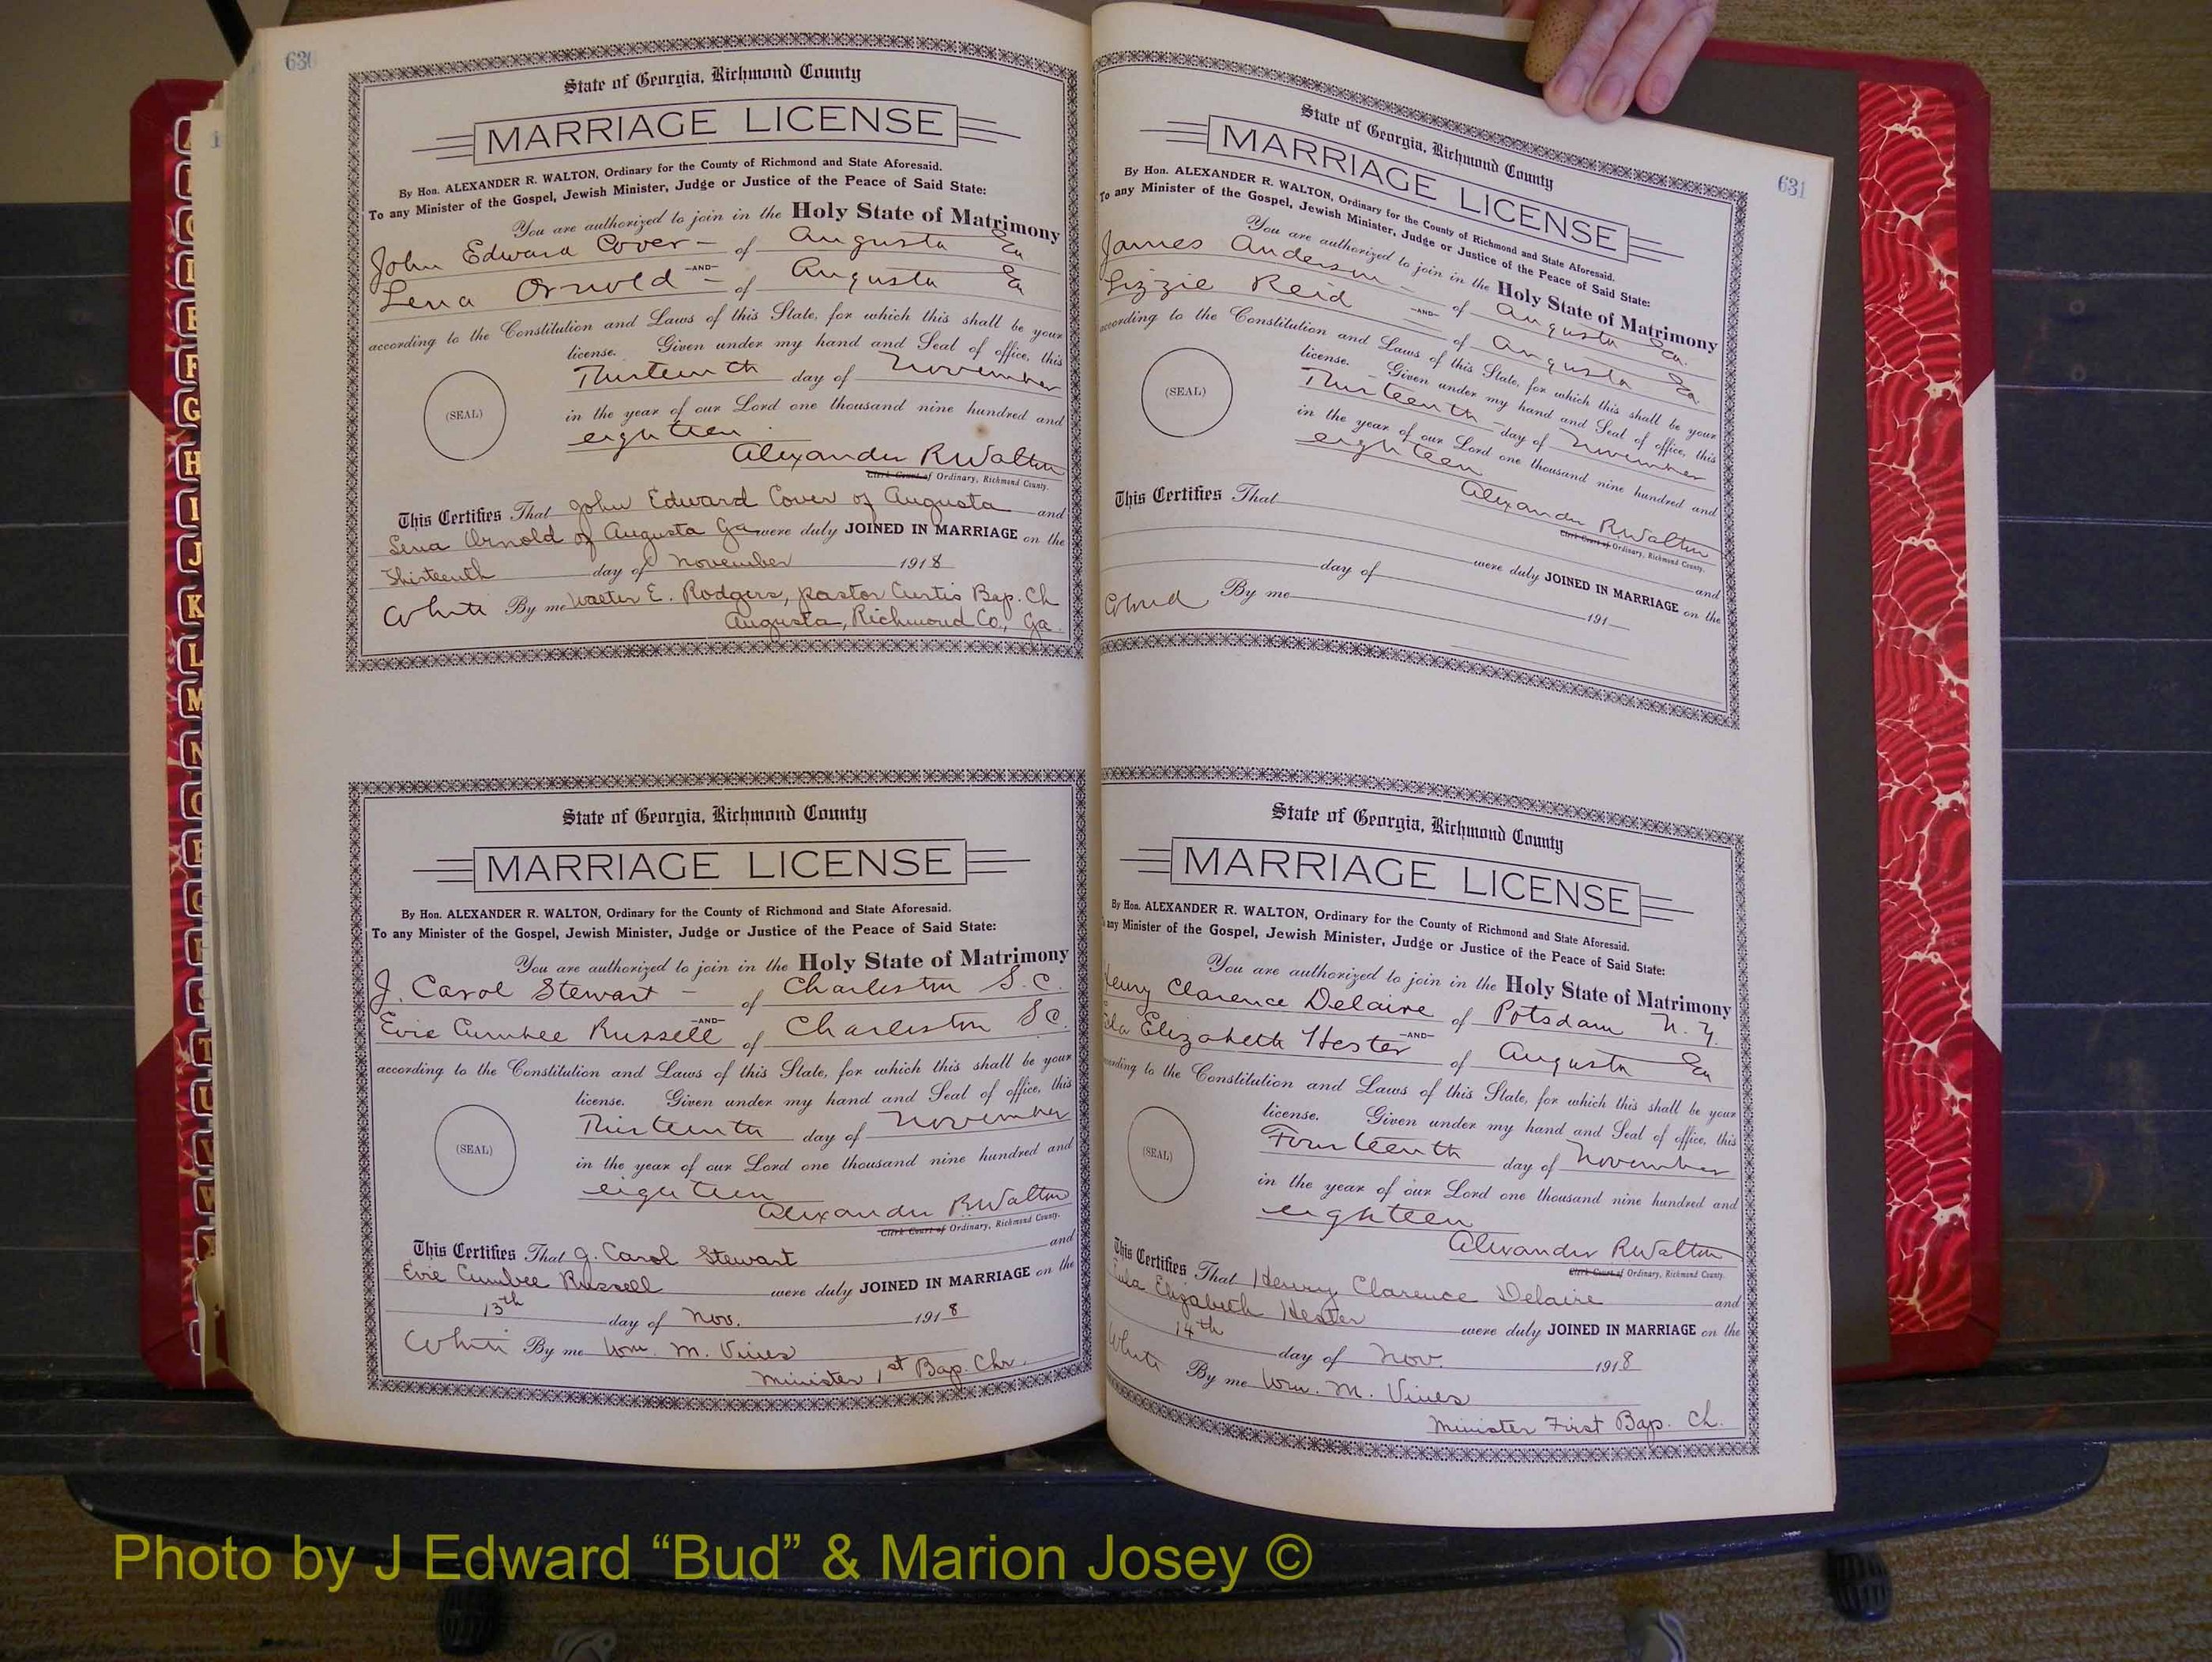 630
State of Georgia, Richmond County
MARRIAGE LICENSE
By Hon. ALEXANDER R. WALTON, Ordinary for the County of Richmond and State Aforesaid.
To any Minister of the Gospel, Jewish Minister, Judge or Justice of the Peace of Said State:
You are authorized to join in the Holy State of Matrimony
John Edward Cover - of Augusta Ga
-AND-
Lena Arnold - of Augusta Ga
according to the Constitution and Laws of this State, for which this shall be your
license. Given under my hand and Seal of office, this
Thirteenth day of November
(SEAL)
in the year of our Lord one thousand nine hundred and
eighteen
Alexander R Walton
Clerk Court of Ordinary, Richmond County.
This Certifies That John Edward Cover of Augusta and
Lena Arnold of Augusta Ga were duly JOINED IN MARRIAGE on the
Thirteenth day of November 1918
White By me Walter E. Rodgers, pastor Curtis Bap. Ch
Augusta, Richmond Co., Ga.
State of Georgia, Richmond County
MARRIAGE LICENSE
By Hon. ALEXANDER R. WALTON, Ordinary for the County of Richmond and State Aforesaid.
To any Minister of the Gospel, Jewish Minister, Judge or Justice of the Peace of Said State:
You are authorized to join in the Holy State of Matrimony
J. Carol Stewart - of Charleston S.C.
-AND-
Evie Cumbee Russell of Charleston SC.
according to the Constitution and Laws of this State, for which this shall be your
license. Given under my hand and Seal of office, this
Thirteenth day of November
(SEAL)
in the year of our Lord one thousand nine hundred and
eighteen
Alexander R Walton
Clerk Court of Ordinary, Richmond County.
This Certifies That J. Carol Stewart and
Evie Cumbee Russell were duly JOINED IN MARRIAGE on the
13th day of Nov. 1918
White By me Wm. M. Vines
Minister 1st Bap. Chr.
631
State of Georgia, Richmond County
MARRIAGE LICENSE
By Hon. ALEXANDER R. WALTON, Ordinary for the County of Richmond and State Aforesaid.
To any Minister of the Gospel, Jewish Minister, Judge or Justice of the Peace of Said State:
You are authorized to join in the Holy State of Matrimony
James Anderson - of Augusta Ga.
-AND-
Lizzie Reid of Augusta Ga.
according to the Constitution and Laws of this State, for which this shall be your
license. Given under my hand and Seal of office, this
Thirteenth day of November
(SEAL)
in the year of our Lord one thousand nine hundred and
eighteen
Alexander R Walton
Clerk Court of Ordinary, Richmond County.
This Certifies That and
were duly JOINED IN MARRIAGE on the
day of 191
Colored By me
State of Georgia, Richmond County
MARRIAGE LICENSE
By Hon. ALEXANDER R. WALTON, Ordinary for the County of Richmond and State Aforesaid.
any Minister of the Gospel, Jewish Minister, Judge or Justice of the Peace of Said State:
You are authorized to join in the Holy State of Matrimony
Henry Clarence Delaire of Potsdam N.Y.
-AND-
Elizabeth Hester of Augusta Ga
according to the Constitution and Laws of this State, for which this shall be your
license. Given under my hand and Seal of office, this
Fourteenth day of November
(SEAL)
in the year of our Lord one thousand nine hundred and
eighteen
Alexander R Walton
Clerk Court of Ordinary, Richmond County.
This Certifies That Henry Clarence Delaire and
Elizabeth Hester were duly JOINED IN MARRIAGE on the
14th day of Nov. 1918
White By me Wm. M. Vines
Minister First Bap. Ch.
F
G
H
I
J
K
L
M
N
Photo by J Edward “Bud” & Marion Josey ©